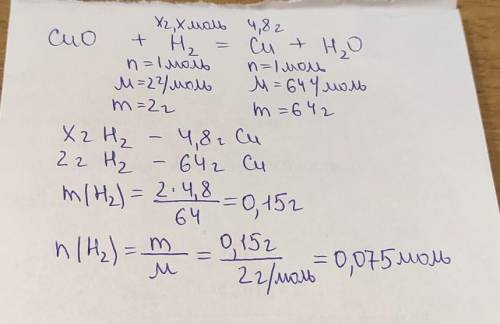 xг, xмоль 4,8г
CuO + H₂ = Cu + H₂O
n=1моль n=1моль
M=2г/моль M=64г/моль
m=2г m=64г
xг H₂ – 4,8г Cu
2г H₂ – 64г Cu
m(H₂) = 2·4,8 / 64 = 0,15г
n(H₂) = m / M = 0,15г / 2г/моль = 0,075моль